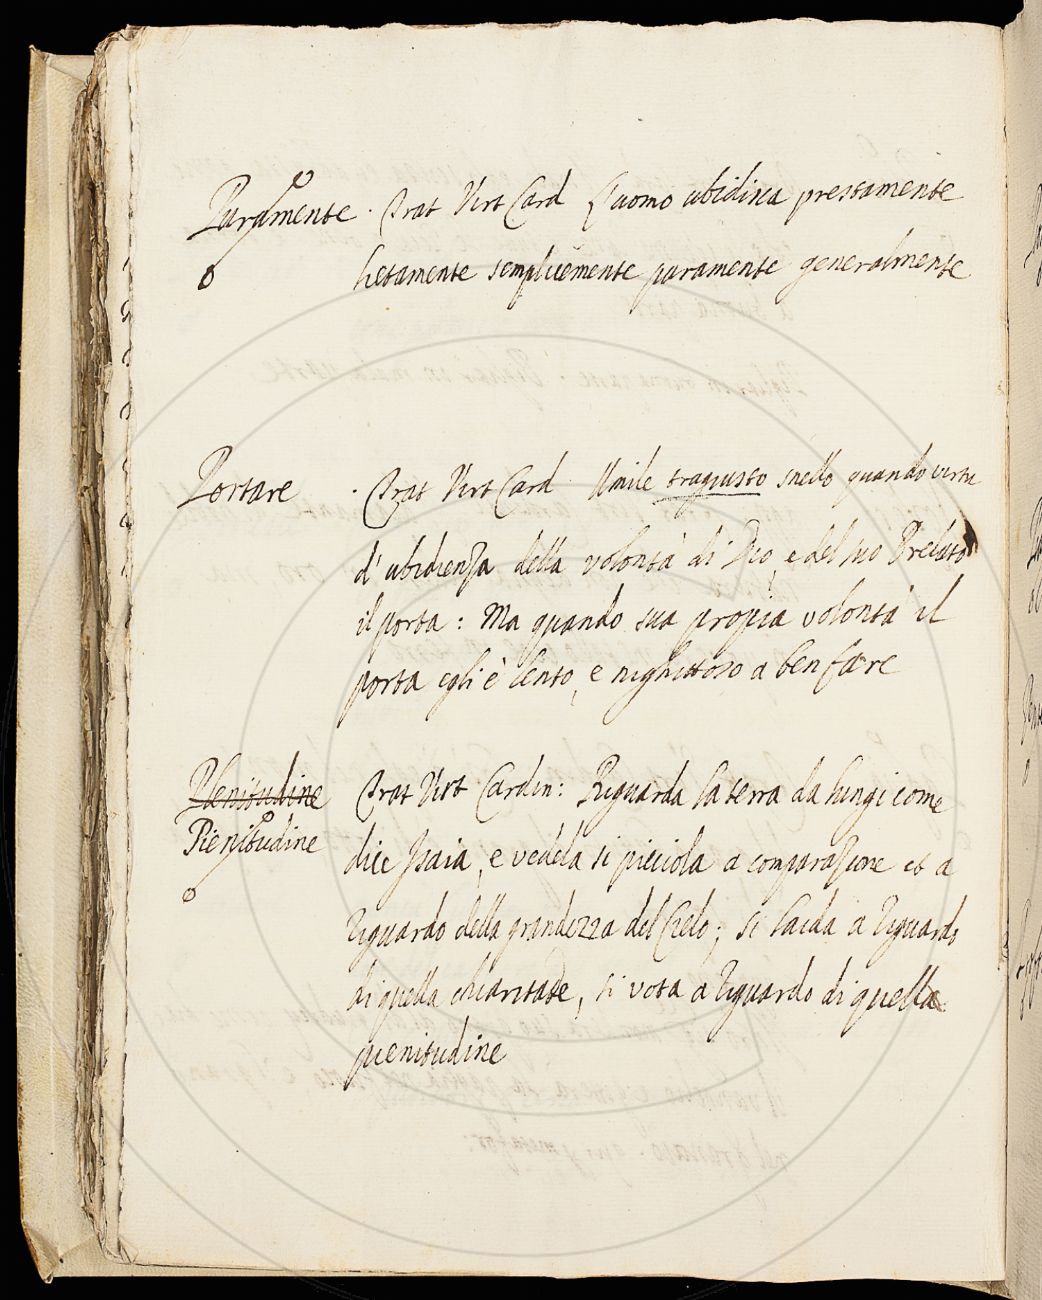 Puramente . Trat Virt Card L'uomo ubidisca prestamente
lietamente semplicemente puramente generalmente
Portare . Trat Virt Card Umile tragiusto snello quando virtu
d'ubidienza della volontà di Dio, e del suo Prelato
il porta : Ma quando sua propia volontà il
porta egli è lento, e nighittoso a ben fare
Plenitudine Trat Virt Cardin: Riguarda la terra da lungi come
Pienitudine
dice Isaia, e vedela si picciola a comparazione et a
riguardo della grandezza del Cielo; si laida a riguardo
di quella chiaritade, si vota a riguardo di quella
pienitudine